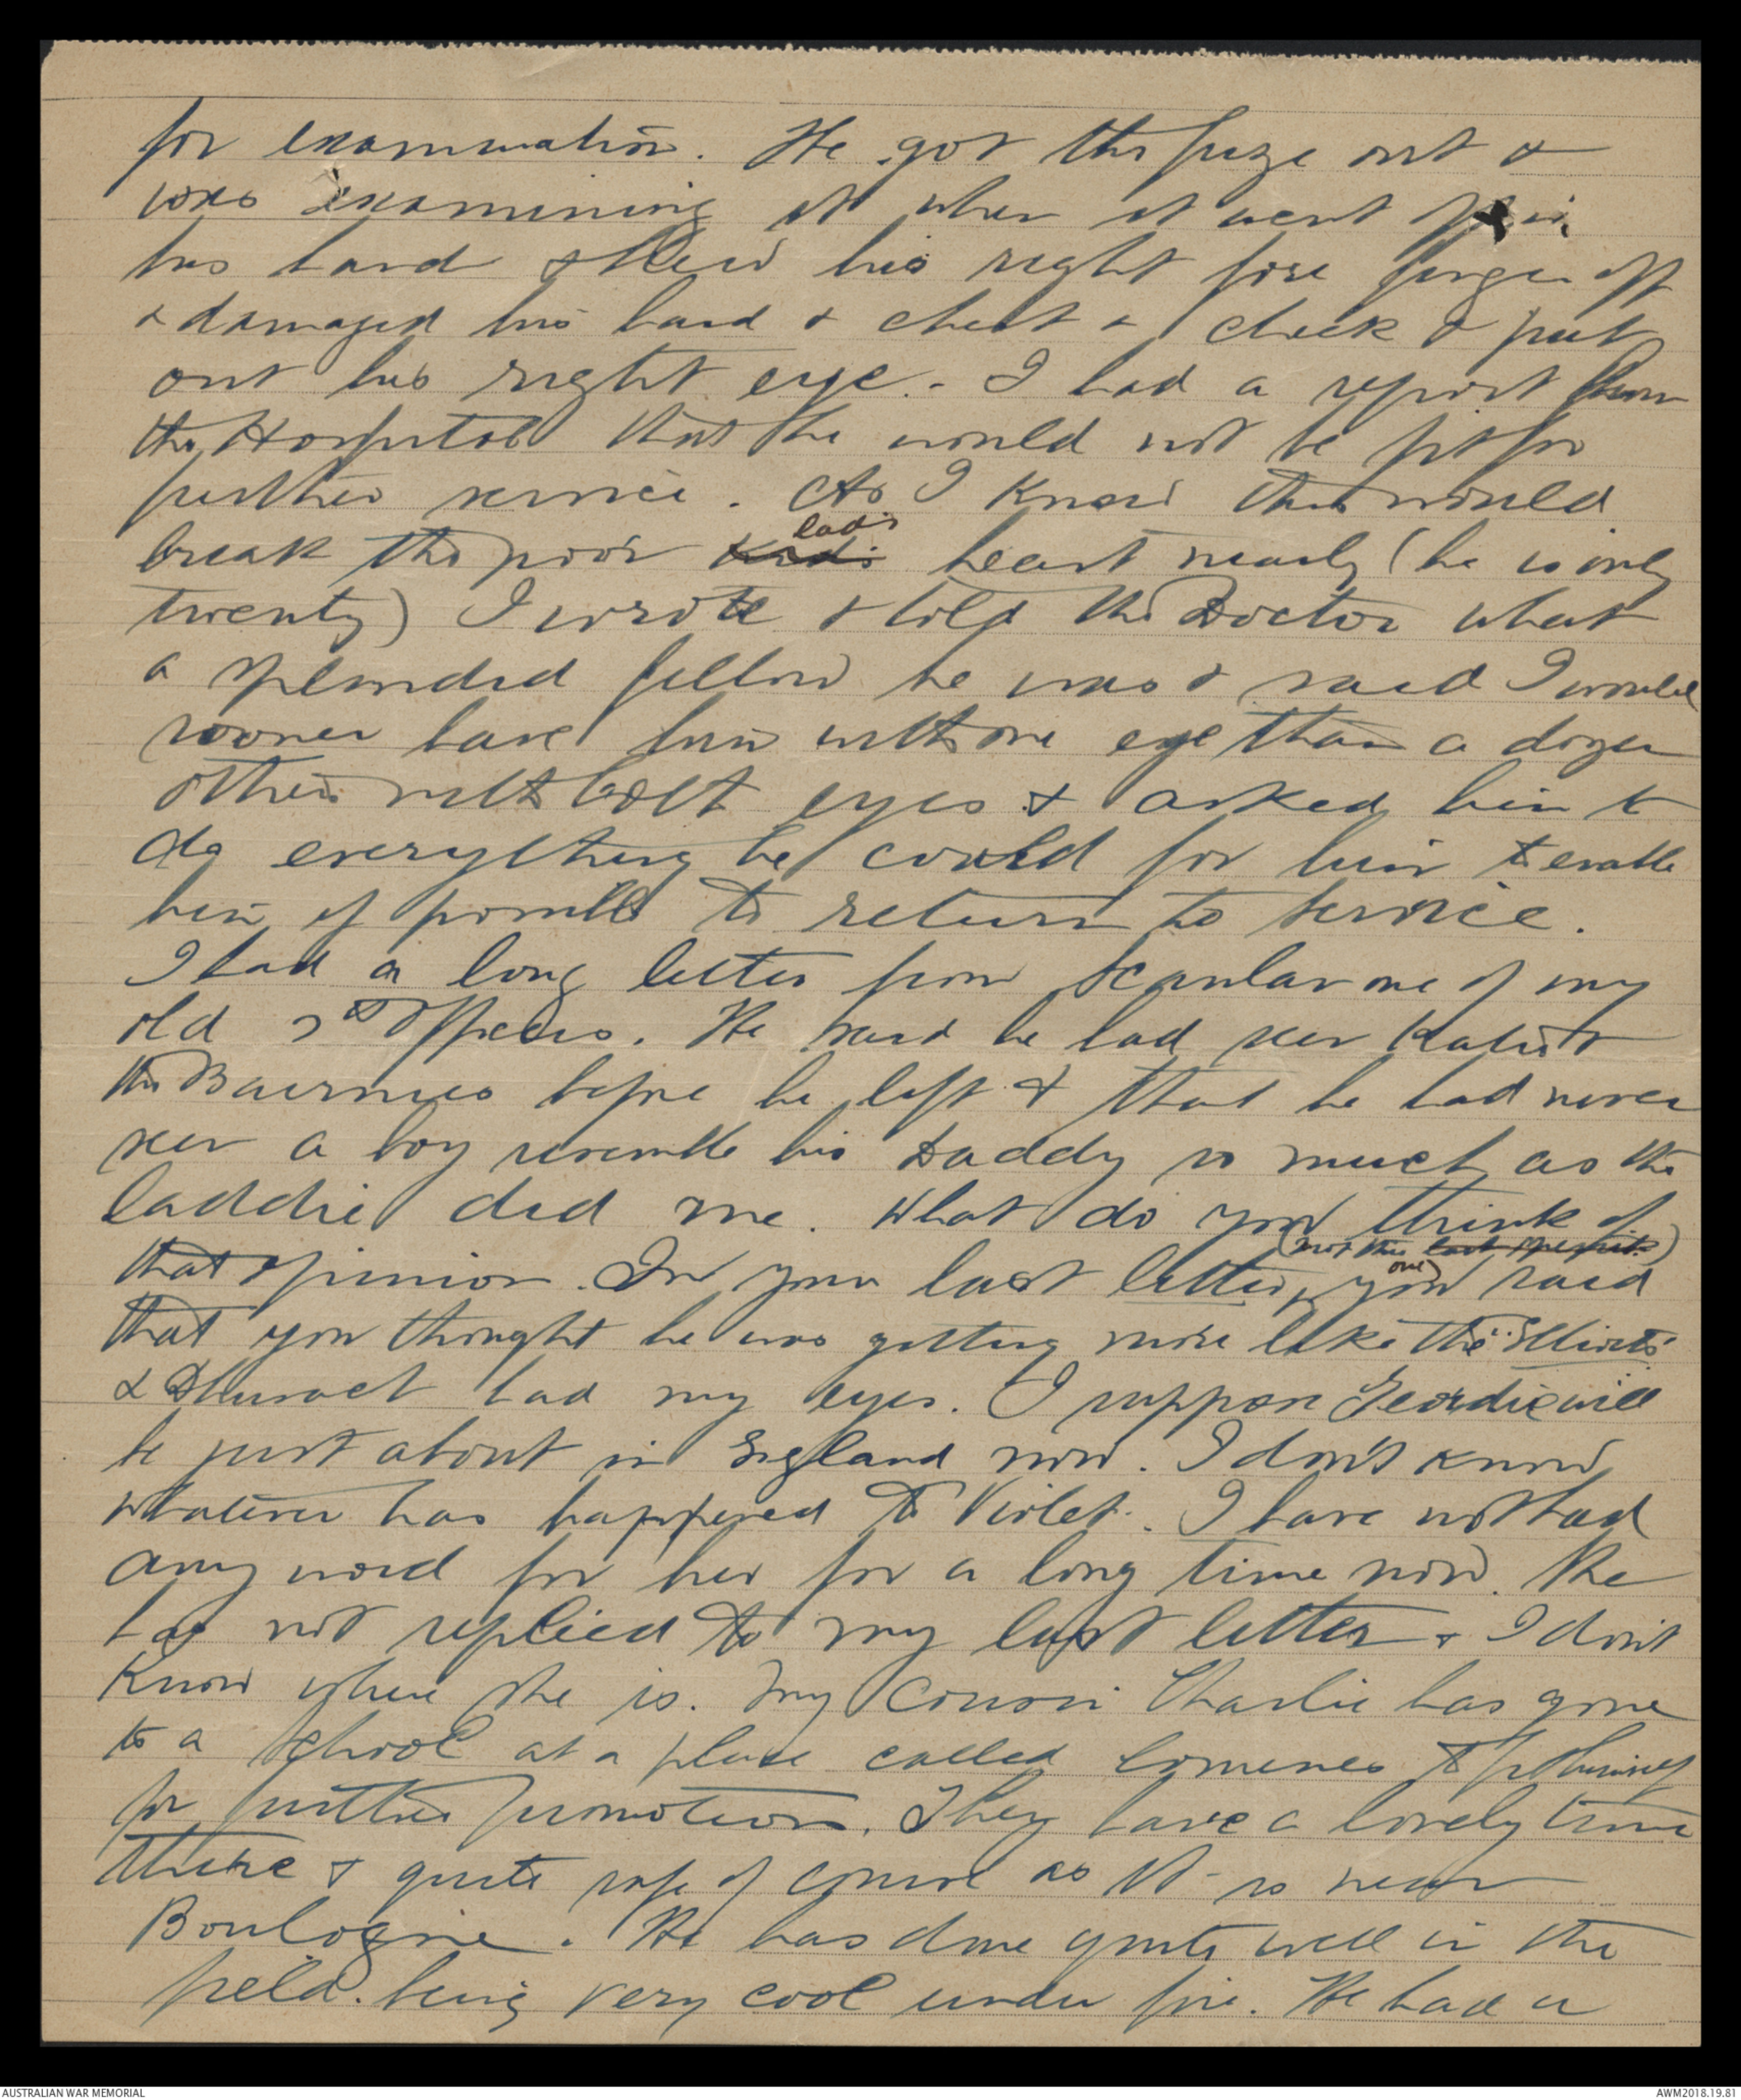 for examination. He got the fuze out &
was examining it when it went off in
his hand & blew his right fore finger off
& damaged his hand & chest & cheek & put
out his right eye. I had a report from
the Hospital that he would not be fit for
further service. As I knew this would
break the poor kid's lad's heart nearly (he is only
twenty) I wrote & told the Doctor what
a splendid fellow he was & said I would
sooner have him with one eye than a dozen
others with both eyes & asked him to
do everything he could for him to enable
him if possible to return to service.
I had a long letter from Scanlan one of my
old Officers. He said he had seen Kate &
the Bairnies before he left & that he had never
seen a boy resemble his Daddy so much as the
laddie did me. What do you think of
that opinion. In your last letter, (not this last one) you said
that you thought he was getting more like the "Elliotts"
& had my eyes. I suppose Geordie will
be just about in England now. I don't know
whatever has happened to Violet. I have not had
any word for her for a long time now. She
has not replied to my last letter & I don't
know where she is. My Cousin Charlie has gone
to a School at a place called to
for further promotion. They have a lovely time
there & quite safe of course as it is near
Boulogne. He has done quite well in the
field. being very cool under fire. He had a
AUSTRALIAN WAR MEMORIAL
AWM2018.19.81